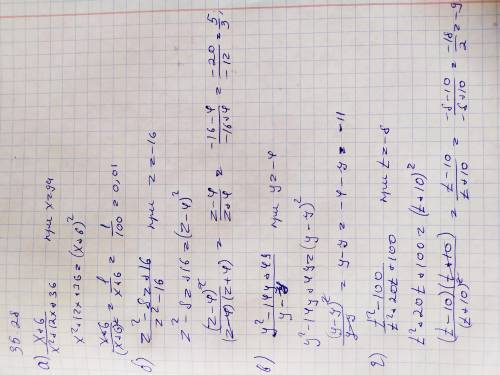 36.28
а) x+6 / x²+12x+36 при x=94
x²+12x+36=(x+6)²
x+6 / (x+6)² = 1 / x+6 = 1 / 100 = 0,01
б) z²-8z+16 / z²-16 при z=-16
z²-8z+16=(z-4)²
(z-4)² / (z-4)(z+4) = z-4 / z+4 = -16-4 / -16+4 = -20 / -12 = 5/3
в) y²-14y+49 / y-7 при y=-4
y²-14y+49=(y-7)²
(y-7)² / y-7 = y-7 = -4-7 = -11
г) t²-100 / t²+20t+100 при t=-8
t²+20t+100=(t+10)²
(t-10)(t+10) / (t+10)² = t-10 / t+10 = -8-10 / -8+10 = -18 / 2 = -9